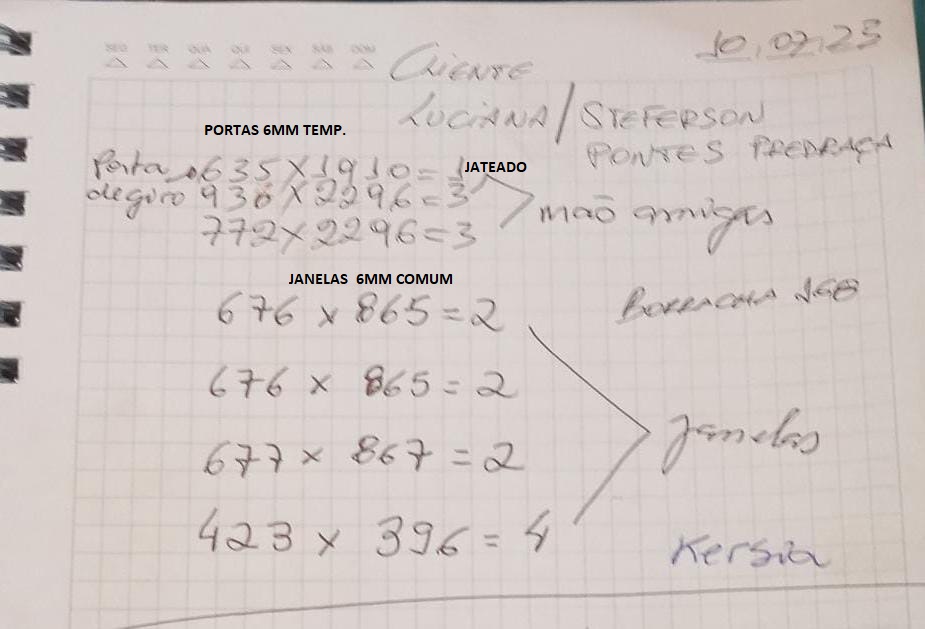 SEG TER QUA QUI SEX SAB DOM
10.07.23
Cliente
Luciana / Steferson
Pontes Predraça
PORTAS 6MM TEMP.
Porta 635 x 1910 = 1 JATEADO
de giro 936 x 2296 = 3
mão amigas
772 x 2296 = 3
JANELAS 6MM COMUM
Borracha 168
676 x 865 = 2
676 x 865 = 2
Janelas
677 x 867 = 2
423 x 396 = 4
Kersia